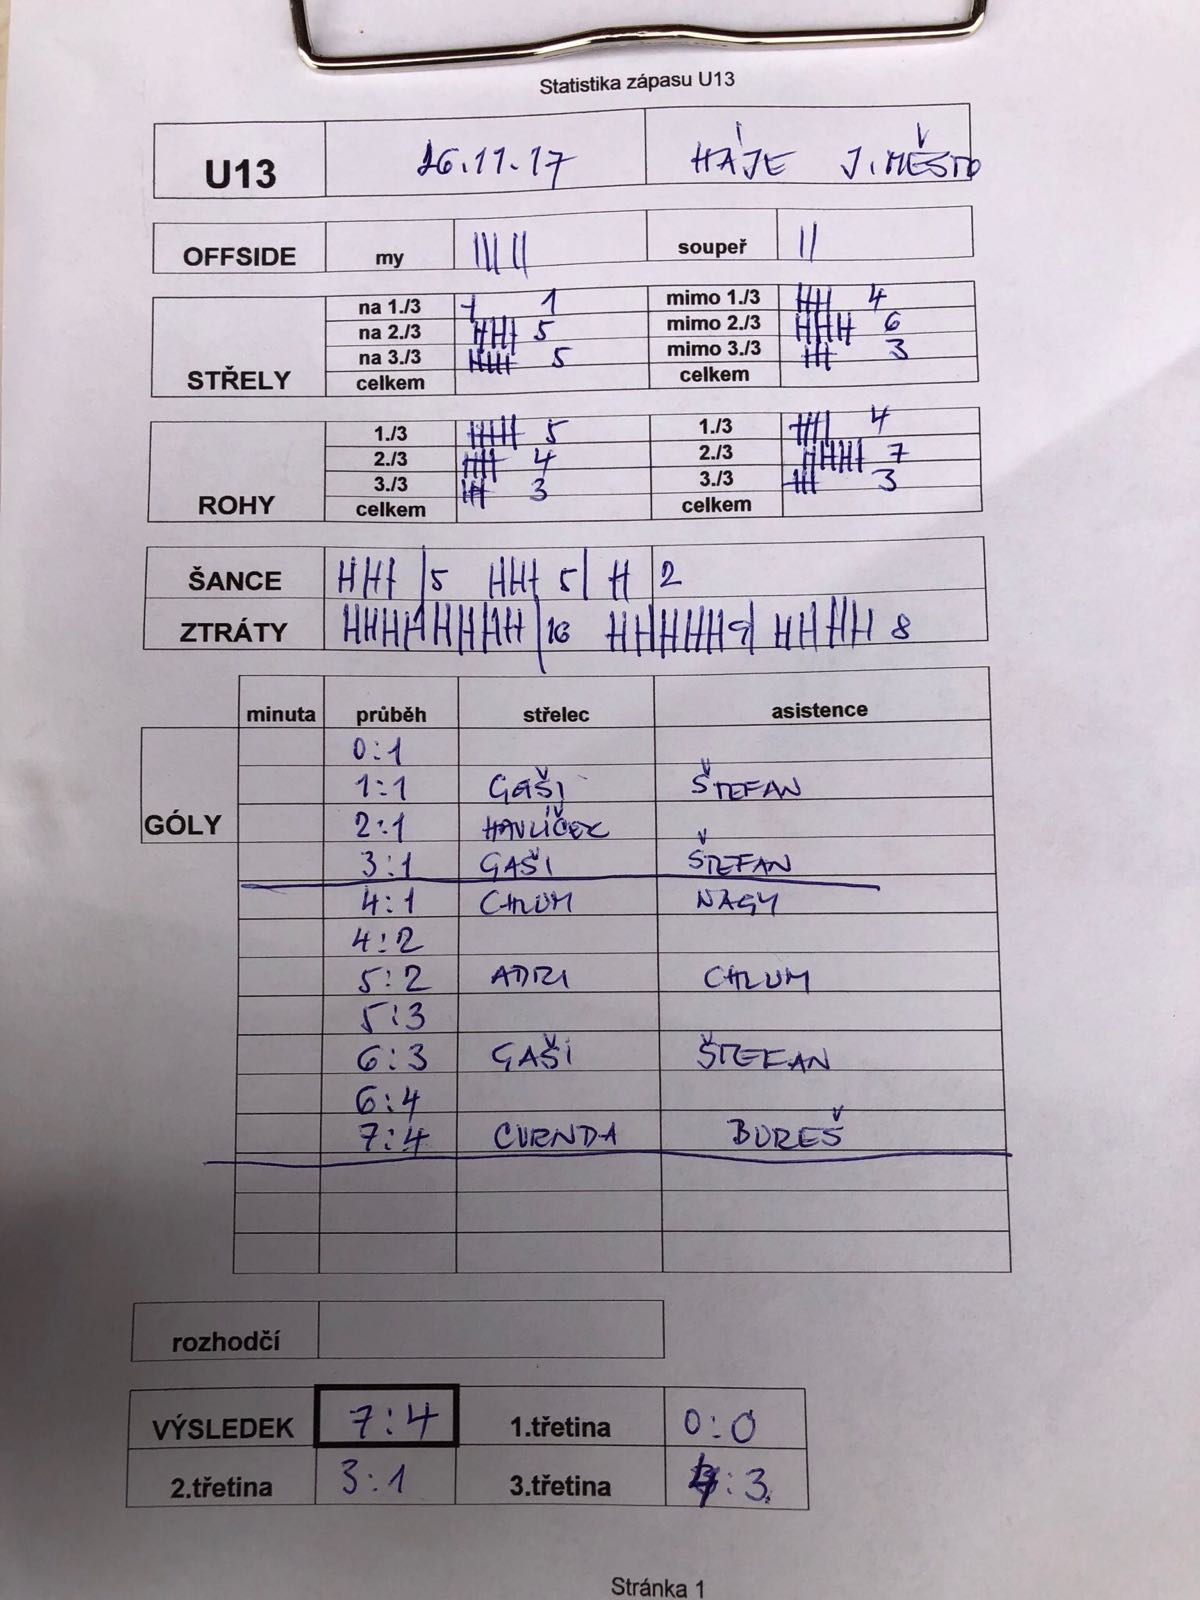 Statistika zápasu U13
U13 26.11.17 HÁJE J.MĚSTO
OFFSIDE my soupeř
na 1./3 1 mimo 1./3 4
na 2./3 5 mimo 2./3 6
na 3./3 5 mimo 3./3 3
STŘELY celkem celkem
1./3 5 1./3 4
2./3 4 2./3 7
3./3 3 3./3 3
ROHY celkem celkem
ŠANCE 5 5 2
ZTRÁTY 16 9 8
minuta průběh střelec asistence
0:1
1:1 GAŠI ŠTEFAN
GÓLY 2:1 HAVLÍČEK
3:1 GAŠI ŠTEFAN
4:1 CHLUM NAGY
4:2
5:2 ADRI CHLUM
5:3
6:3 GAŠI ŠTEFAN
6:4
7:4 CURNDA BUREŠ
rozhodčí
VÝSLEDEK 7:4 1.třetina 0:0
2.třetina 3:1 3.třetina 4:3
Stránka 1